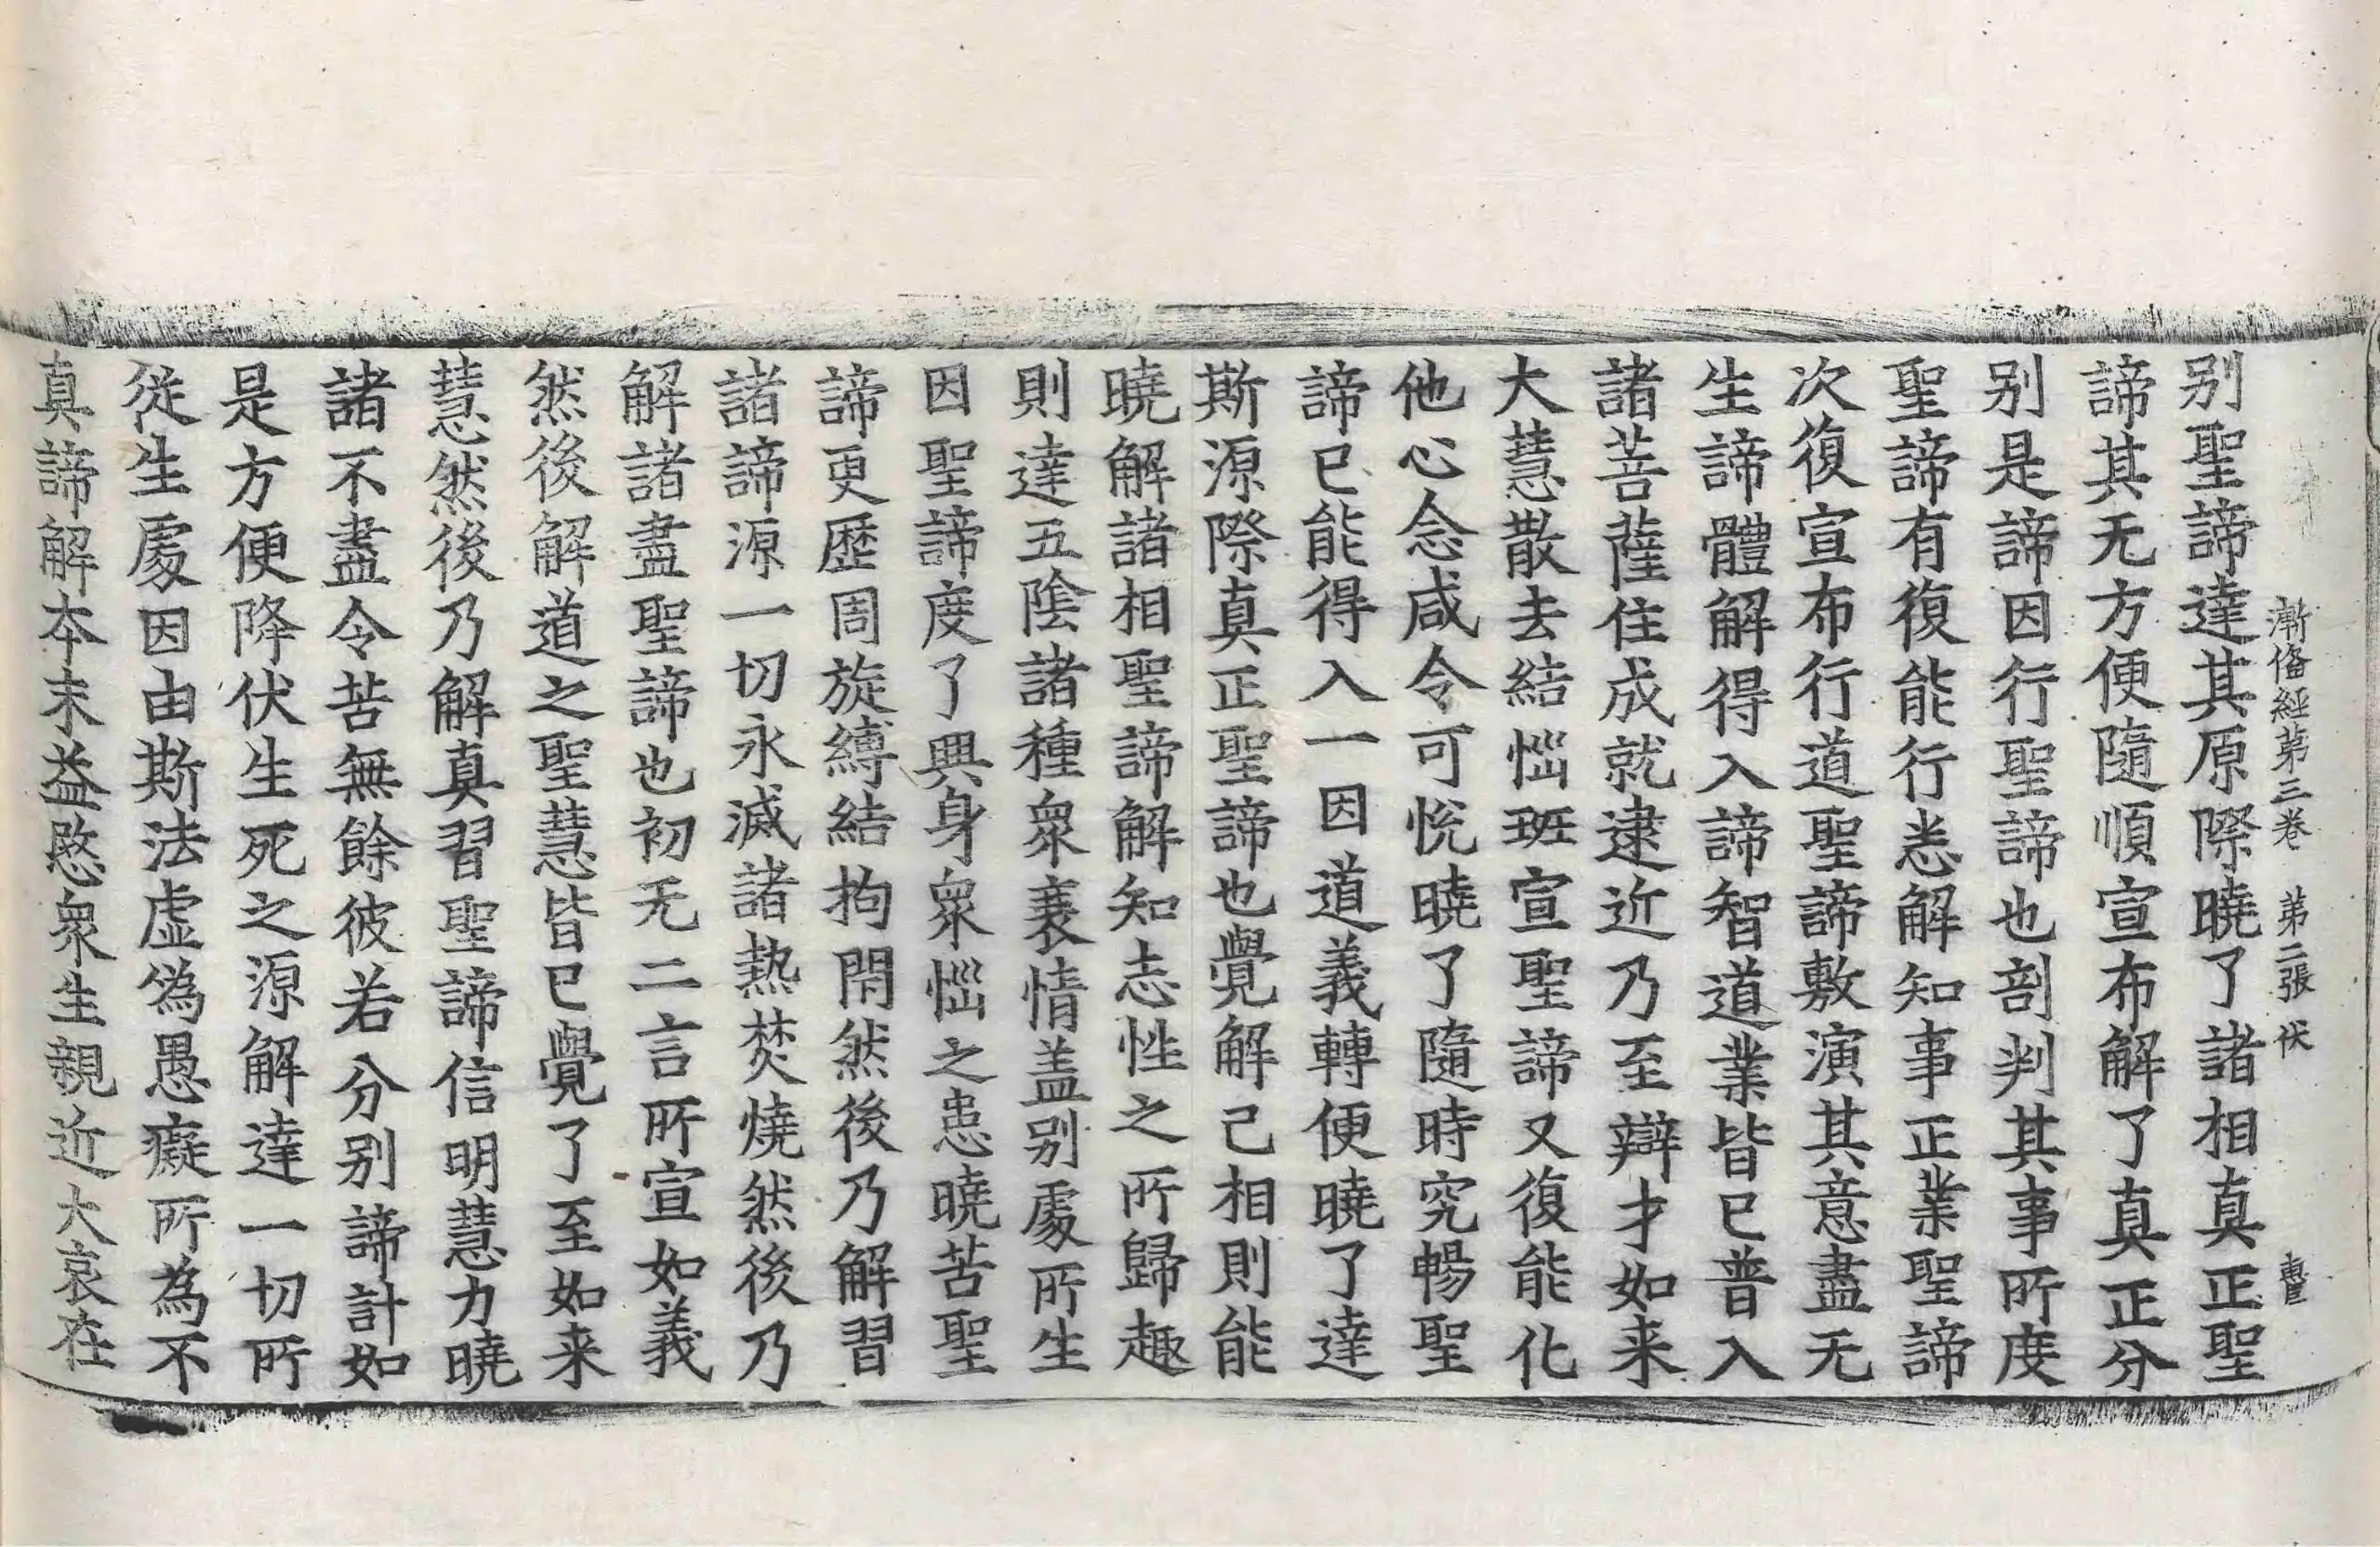 漸俻經第三卷　第二張　伏
别聖諦達其原際曉了諸相真正聖
諦其无方便隨順宣布解了真正分
别是諦因行聖諦也剖判其事所度
聖諦有復能行悉解知事正業聖諦
次復宣布行道聖諦敷演其意盡无
生諦體解得入諦智道業皆已普入
諸菩薩住成就逮近乃至辯才如来
大慧散去結惱班宣聖諦又復能化
他心念咸令可悅曉了隨時究暢聖
諦已能得入一因道義轉便曉了達
斯源際真正聖諦也覺解己相則能
曉解諸相聖諦解知志性之所歸趣
則達五陰諸種衆衰情盖别處所生
因聖諦度了興身衆惱之患曉苦聖
諦更歷周旋縛結拘閇然後乃解習
諸諦源一切永滅諸熱焚燒然後乃
解諸盡聖諦也初无二言所宣如義
然後解道之聖慧皆已覺了至如来
慧然後乃解真習聖諦信明慧力曉
諸不盡令苦無餘彼若分别諦計如
是方便降伏生死之源解達一切所
從生處因由斯法虚偽愚癡所為不
真諦解本末益愍衆生親近大哀在